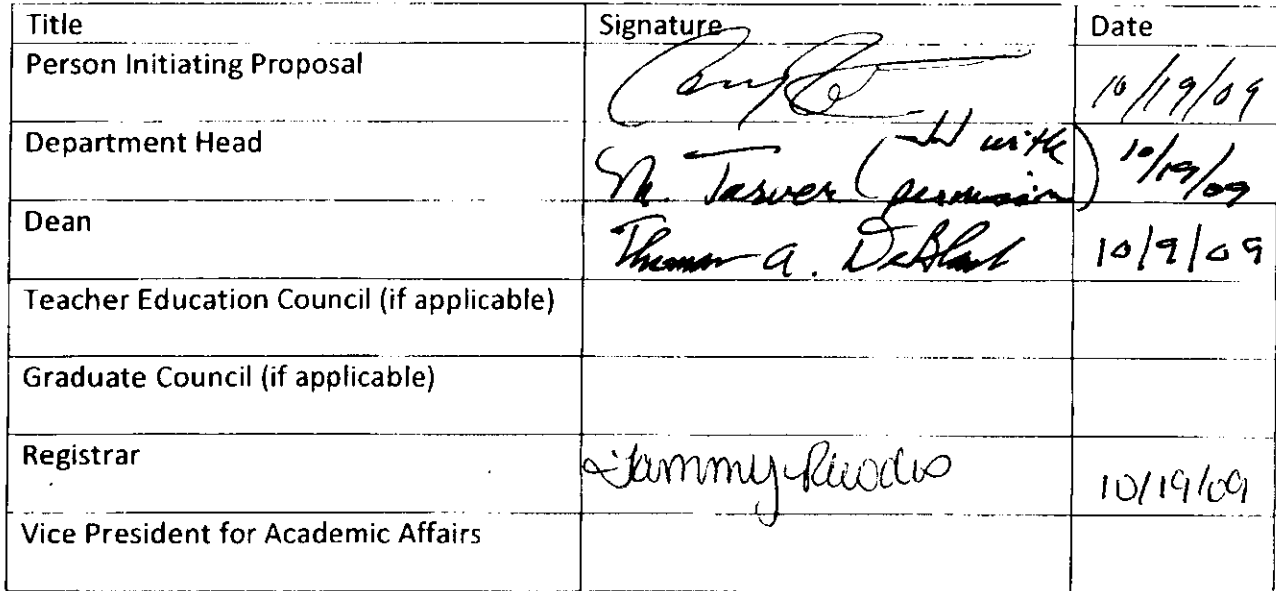 Title Signature Date
Person Initiating Proposal 10/19/09
Department Head M. Tarver ( with permission) 10/19/09
Dean Thomas A. 10/9/09
Teacher Education Council (if applicable)
Graduate Council (if applicable)
Registrar Tammy Rhodes 10/19/09
Vice President for Academic Affairs